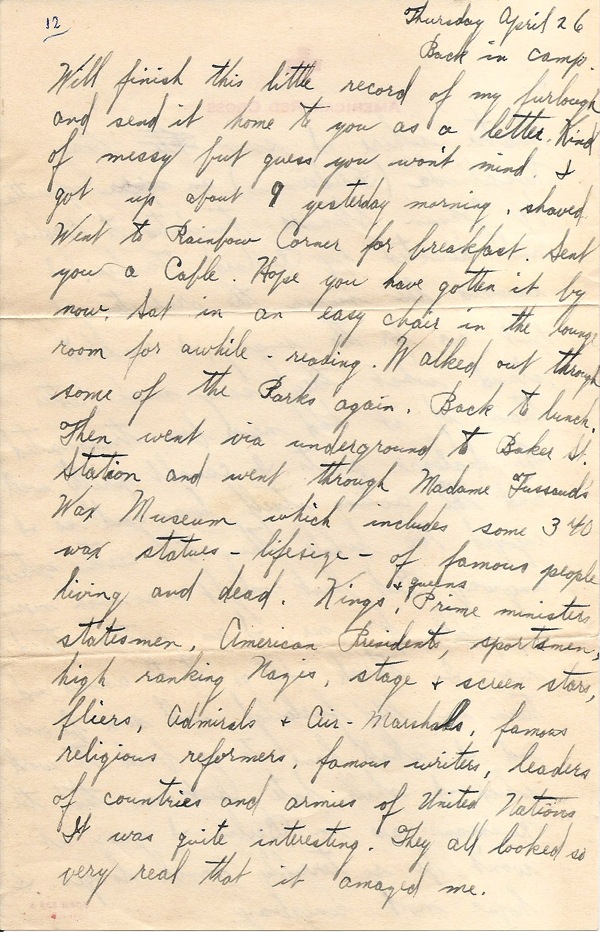 12
Thursday April 26
Back in camp.
Will finish this little record of my furlough
and send it home to you as a letter. Kind
of messy but guess you won't mind. I
got up about 9 yesterday morning, shaved
Went to Rainbow Corner for breakfast. Sent
you a Cable. Hope you have gotten it by
now. Sat in an easy chair in the lounge
room for awhile - reading. Walked out through
some of the Parks again. Back to lunch.
Then went via underground to Baker St.
Station and went through Madame Tussaud's
Wax Museum which includes some 340
wax statues - lifesize - of famous people
living and dead. Kings + queens, Prime ministers
statesmen, American Presidents, sportsmen,
high ranking Nazis, stage + screen stars,
fliers, Admirals + Air-Marshalls, famous
religious reformers, famous writers, leaders
of countries and armies of United Nations
It was quite interesting. They all looked so
very real that it amazed me.